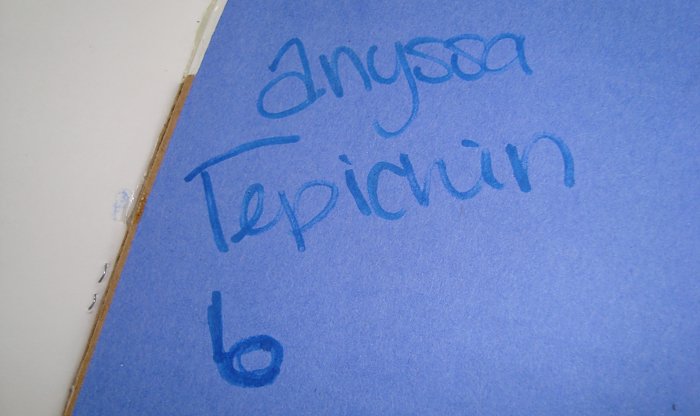 Anyssa
Tepichin
6